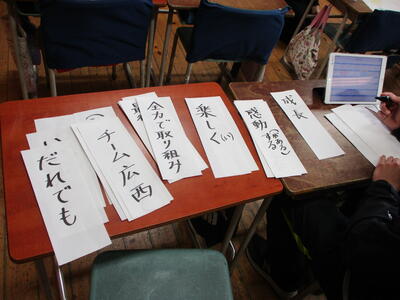 成長
感動(がある する)
楽しく(い)
全力で取り組み
チーム広西
だれでも